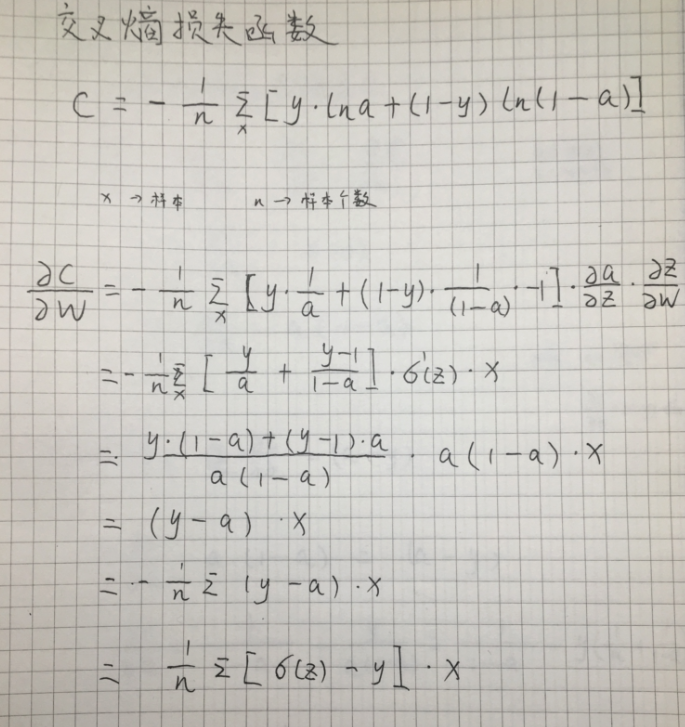 交叉熵损失函数
C = - 1/n Σ_x [y·lna+(1-y) ln(1-a)]
x → 样本 n → 样本个数
∂C/∂W = - 1/n Σ_x [y· 1/a + (1-y)· 1/(1-a) · -1] · ∂a/∂z · ∂z/∂w
= - 1/n Σ_x [ y/a + (y-1)/(1-a) ] · σ'(z) · x
= (y·(1-a)+(y-1)·a)/(a(1-a)) · a(1-a) · x
= (y-a) · x
= - 1/n Σ (y-a) · x
= 1/n Σ [σ(z) - y] · x